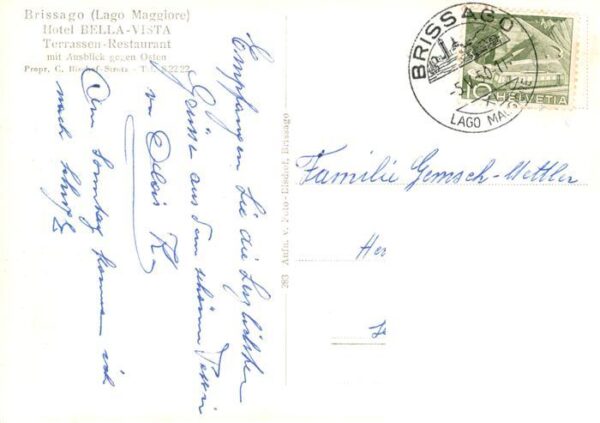 Brissago (Lago Maggiore)
Hotel BELLA-VISTA
Terrassen-Restaurant
mit Ausblick gegen Osten
Propr. C. Bischof
Empfangen Sie die herzlichsten
Grüsse aus dem schönen Tessin
von Alois
Am Sonntag komme ich
nach
283 Aufn. v. Foto-Bischof, Brissago
BRISSAGO
LAGO MAG
10 HELVETIA
Familie Gemsch-Mettler